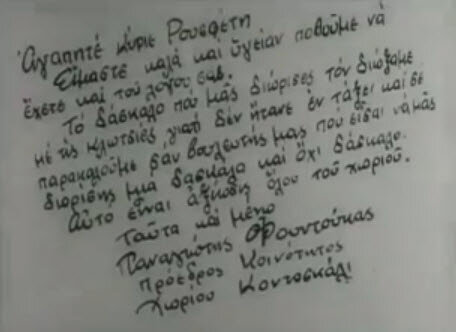 Ἀγαπητέ κύριε Ρουσφέτη
Εἴμαστε καλά και ὑγείαν ποθοῦμε νά
ἔχετε καί τοῦ λόγου σας.
Τό δάσκαλο πού μᾶς διόρισες τόν διώξαμε
μέ τίς κλωτσιές γιατί δέν ἤτανε ἐν τάξει καί σέ
παρακαλοῦμε σάν βουλευτής μας πού εἶσαι νά μᾶς
διορίσης μια δασκάλα καί ὄχι δάσκαλο.
Αὐτό εἶναι ἀξίωσις ὅλου τοῦ χωριοῦ.
Ταῦτα καί μένω
Παναγιώτης Φουντούκας
Πρόεδρος Κοινότητος
Χωρίου Κοντοσκάλι